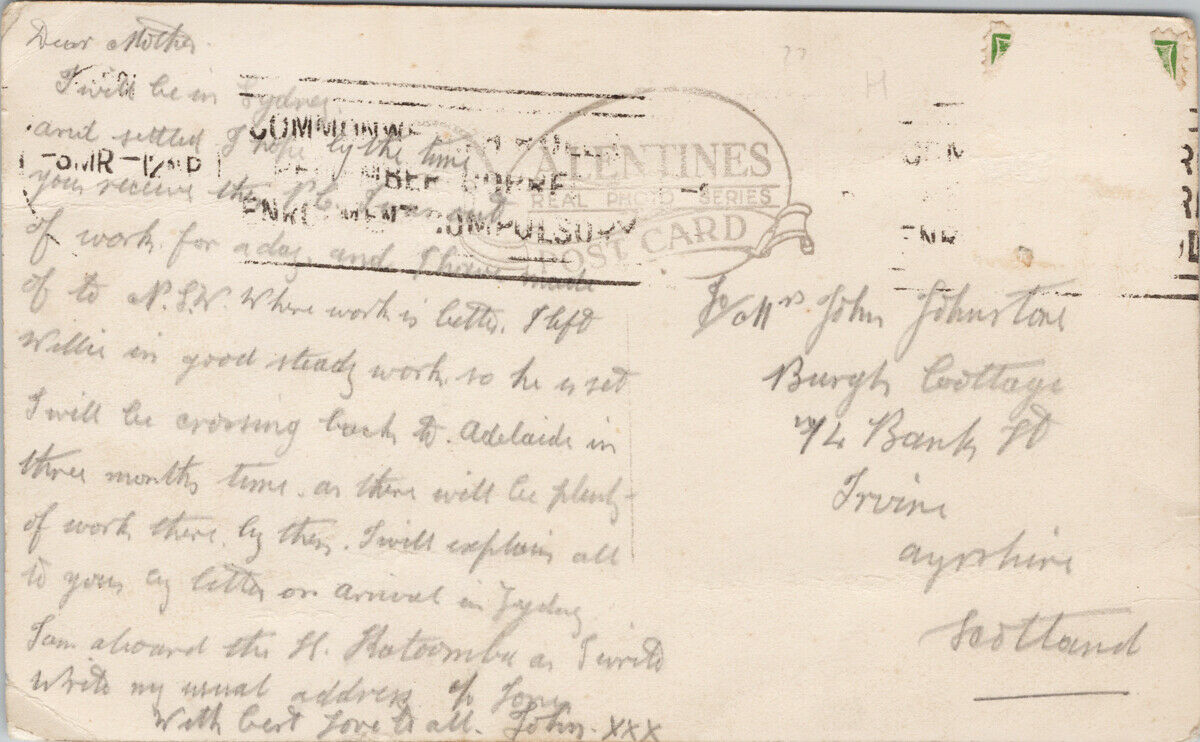 Dear Mother
I will be in Sydney
and settled I hope by the time
you receive this P.C. I was out
of work for a day, and I have made
of to N.S.W. Where work is better. I left
Willie in good steady work, so he is set
I will be crossing back to Adelaide in
three months time. as there will be plenty
of work there by then. I will explain all
to you by letter on arival in Sydney
I am aboard the Katoomba as I write
Write my usual address c/o
With best Love to all. John. xxx
COMMONWE
5MR-12NP
REMEMBER CORRE
ENROLMENT COMPULSORY
VALENTINES
REAL PHOTO SERIES
POST CARD
To/ Mrs John Johnstone
Burgh Cottage
74 Bank St
Irvine
Ayrshire
Scotland
H